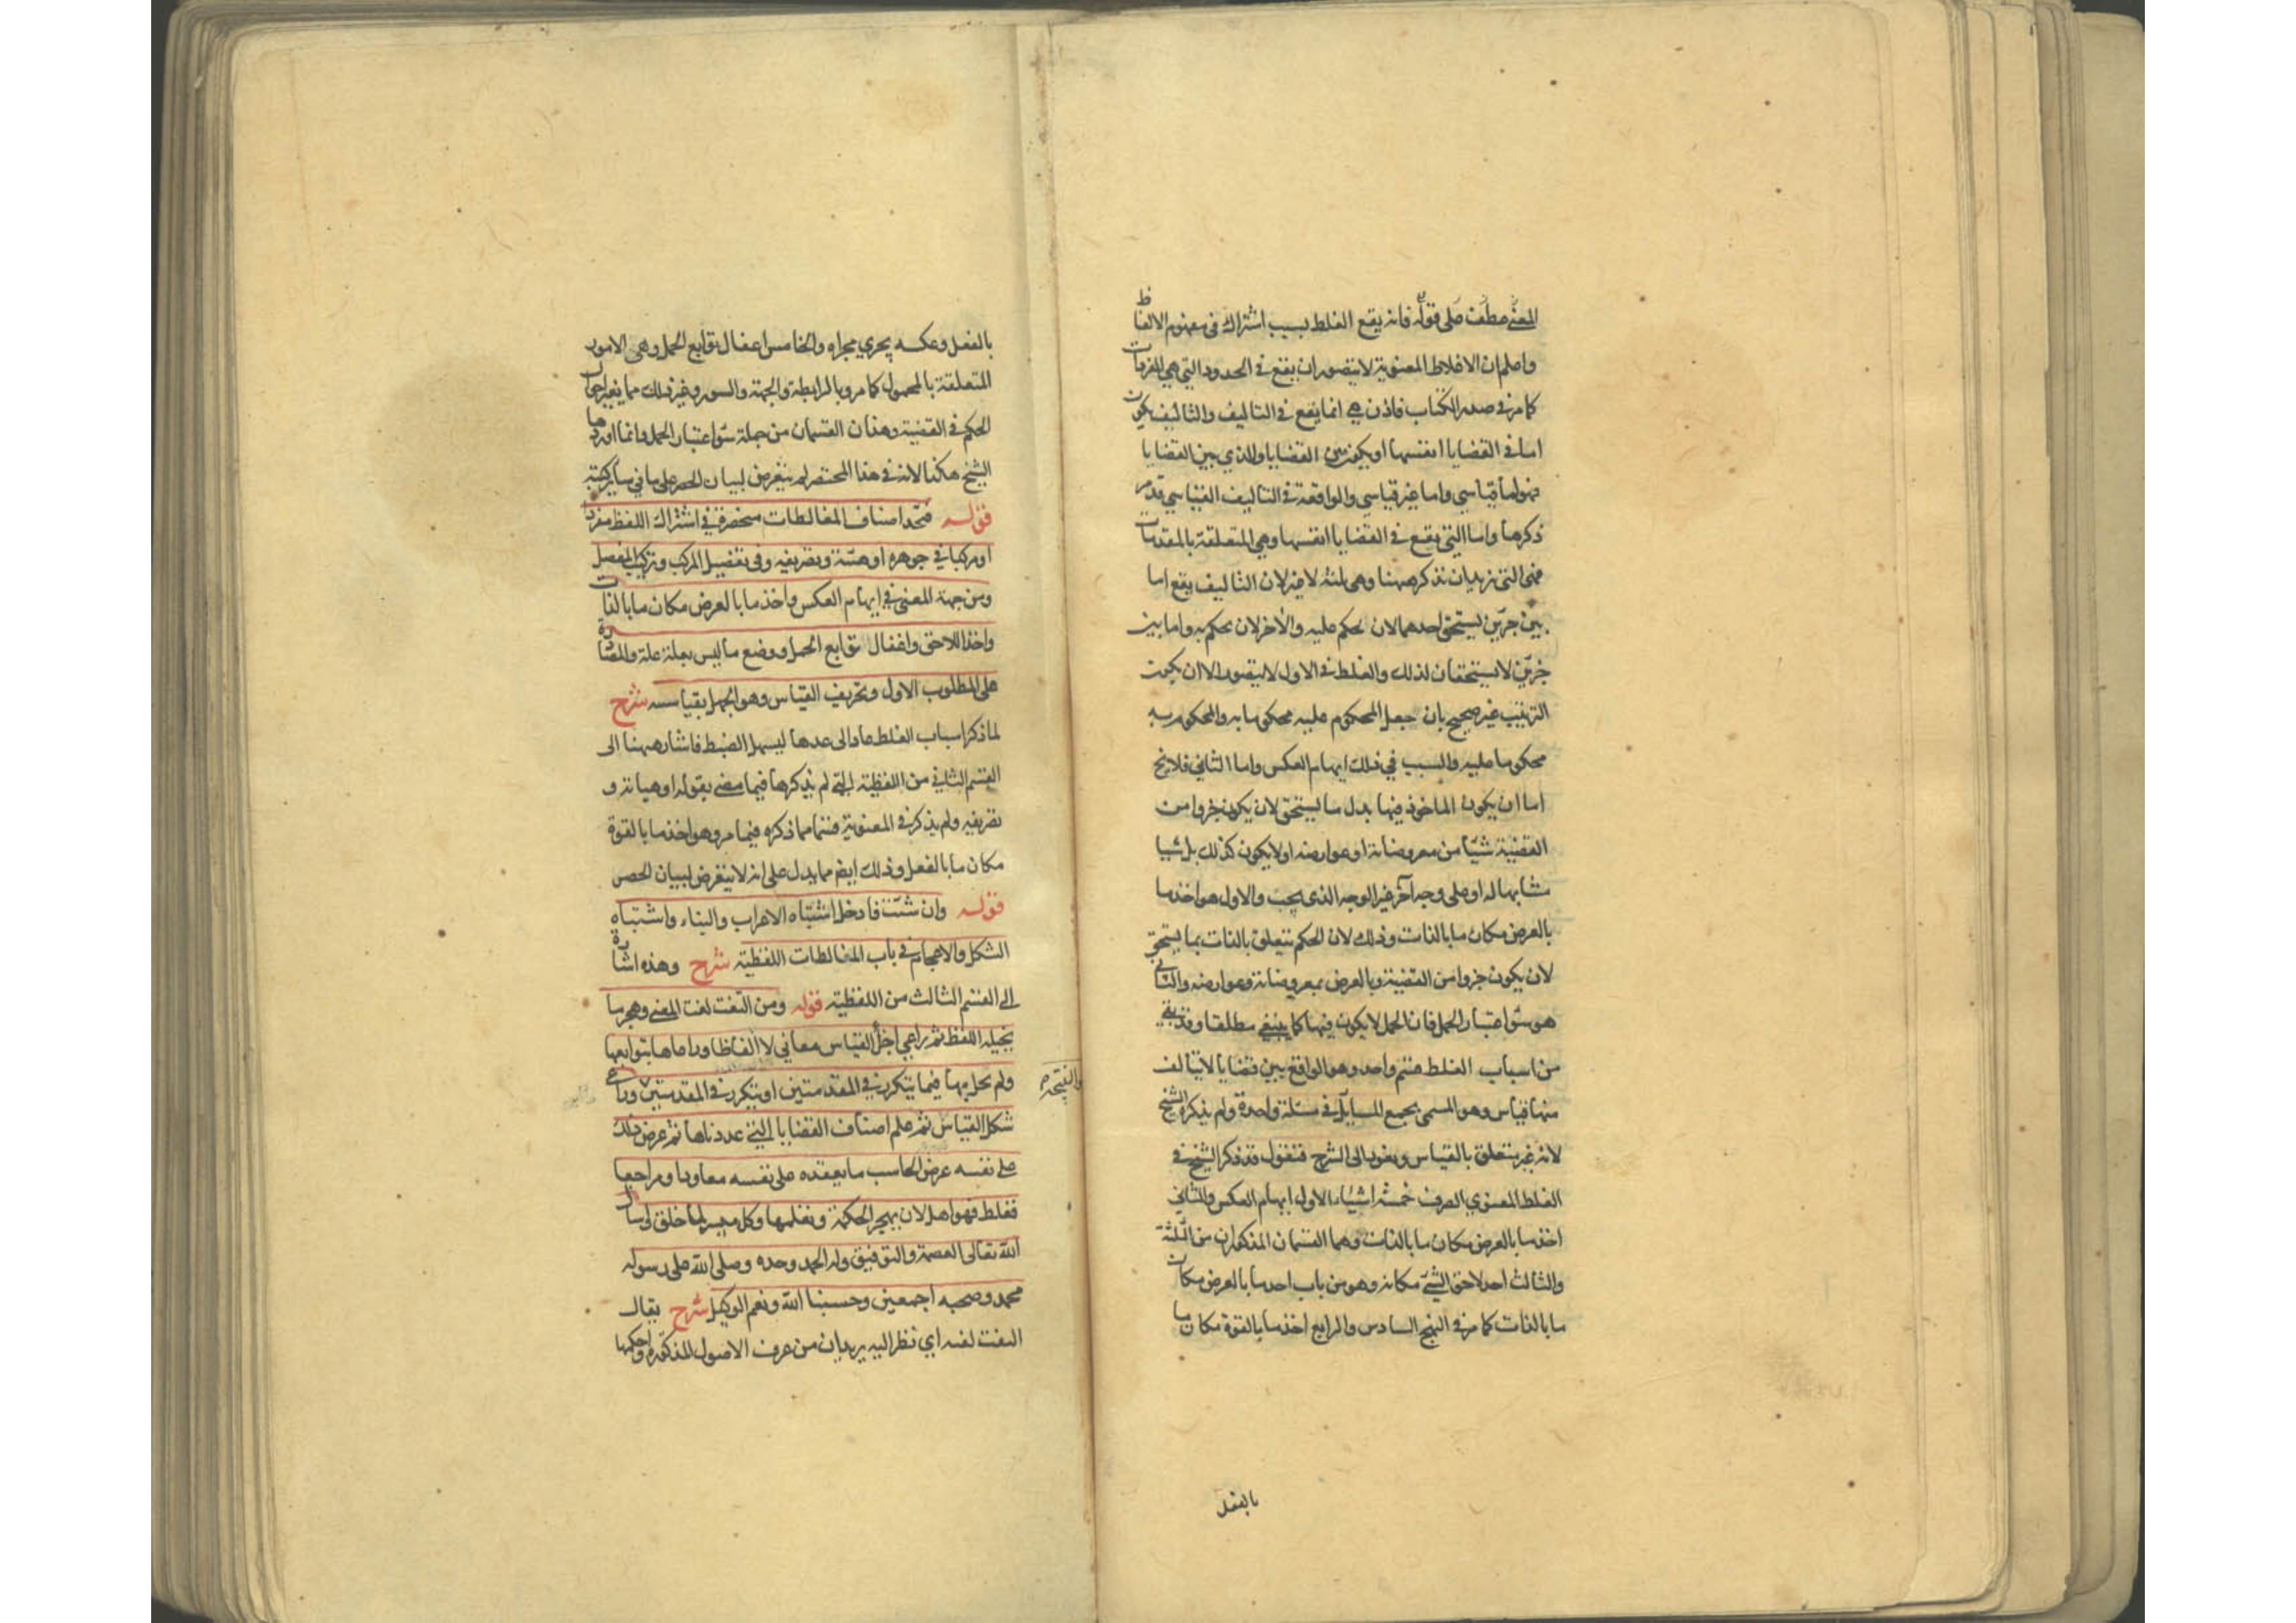 المعنى عطف على قوله فانه يقع الغلط بسبب اشتراك في مفهوم الالفاظ
واعلم ان الاغلاط المعنوية لا يتصور ان يقع في الحدود التي هي المفردات
كما مر في صدر الكتاب فاذن هي انما يقع في التاليف والتاليف يكون
اما في القضايا انفسها او يكون بين القضايا والذي بين القضايا
فهو اما قياسي واما غير قياسي والواقعة في التاليف القياسي قد مر
ذكرها واما التي يقع في القضايا انفسها وهي المتعلقة بالمقدمات
فهي التي يريد ان يذكر ههنا وهي ثلثة لا غير لان التاليف يقع اما
بين جزئين يستحق احدهما لان يحكم عليه والآخر لان يحكم به واما بين
جزئين لا يستحقان لذلك والغلط في الاول لا يتصور الا ان يكون
الترتيب غير صحيح بان جعل المحكوم عليه محكوما به والمحكوم به
محكوما عليه والسبب في ذلك ايهام العكس واما الثاني فلا يخ
اما ان يكون الماخوذ فيها بدل ما يستحق لان يكون جزوا من
القضية شيئا من معروضاته او عوارضه او لا يكون كذلك بل شيا
مشابها له او على وجه آخر غير الوجه الذي يجب والاول هو اخذ ما
بالعرض مكان ما بالذات وذلك لان الحكم يتعلق بالذات بما يستحق
لان يكون جزوا من القضية وبالعرض بمعروضاته وعوارضه والثاني
هو سوء اعتبار الحمل فان الحمل لا يكون فيها كما ينبغي مطلقا وقد بقي
من اسباب الغلط قسم واحد وهو الواقع بين قضايا لا يتالف
منها قياس وهو المسمى بجمع المسايل في مسئلة واحدة ولم يذكره الشيخ
لانه غير متعلق بالقياس ونعود الى الشرح فنقول قد ذكر الشيخ في
الغلط المعنوي الصرف خمسة اشياء الاول ايهام العكس والثاني
اخذ ما بالعرض مكان ما بالذات وهما القسمان المذكوران من الثلثة
والثالث اخذ لاحق الشئ مكانه وهو من باب اخذ ما بالعرض مكان
ما بالذات كما مر في النهج السادس والرابع اخذ ما بالقوة مكان ما
بالفعل
بالفعل وعكسه يجري مجراه والخامس اغفال توابع الحمل وهي الامور
المتعلقة بالمحمول كما مر وبالرابطة والجهة والسور وغير ذلك مما يغير احوال
الحكم في القضية وهذان القسمان من جملة سوء اعتبار الحمل وانما اوردها
الشيخ هكذا لانه في هذا المختصر لم يتعرض لبيان الحصر على ما في سائر كتبه
قوله فتجد اصناف المغالطات منحصرة في اشتراك اللفظ مفردا
او مركبا في جوهره او هيئته وتصريفه وفي تفصيل المركب وتركيب المفصل
ومن جهة المعنى في ايهام العكس واخذ ما بالعرض مكان ما بالذات
واخذ اللاحق واغفال توابع الحمل ووضع ما ليس بعلة علة والمصادرة
على المطلوب الاول وتحريف القياس وهو الجهل بقياسه شرح
لما ذكر اسباب الغلط عاد الى عدها ليسهل الضبط فاشار ههنا الى
القسم الثاني من اللفظية التي لم يذكرها فيما مضى بقوله او هياته و
تصريفه ولم يذكر في المعنوية قسما مما ذكره فيما مر وهو اخذ ما بالقوة
مكان ما بالفعل وذلك ايضا مما يدل على انه لا يتعرض لبيان الحصر
قوله وان شئت فادخل اشتباه الاعراب والبناء واشتباه
الشكل والاعجام في باب المغالطات اللفظية شرح وهذه اشارة
الى القسم الثالث من اللفظية قوله ومن التفت لفت المعنى وهجر ما
يخيله اللفظ ثم راعى اجزا القياس معاني لا الفاظا وراعاها بتوابعها
ولم يخل بها فيما يتكرر في المقدمتين او يتكرر في المقدمتين وراعى
والنتيجة
شكل القياس ثم علم اصناف القضايا التي عددناها ثم عرض ذلك
على نفسه عرض الحاسب ما يعقده على نفسه معاودا ومراجعا
فغلط فهو اهل لان يهجر الحكمة وتعلمها وكل ميسر لما خلق له نسأل
الله تعالى العصمة والتوفيق وله الحمد وحده وصلى الله على رسوله
محمد وصحبه اجمعين وحسبنا الله ونعم الوكيل شرح يقال
التفت لفته اي نظر اليه يريد ان من عرف الاصول المذكورة واحكمها